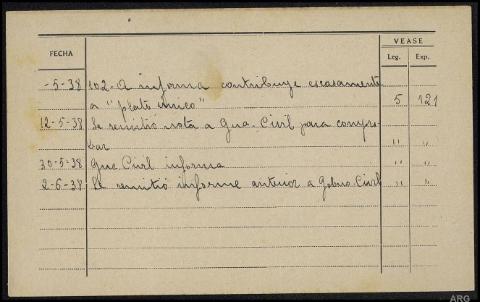 VEASE
FECHA Leg. Exp.
-5-38 102-A informa contribuye escasamente
a "plato unico" 5 121
12-5-38 Se remitió nota a Gua. Civil para compro-
bar " "
30-5-38 Gua Civil informa " "
2-6-38 Se remitió informe anterior a Gobno Civil " "
ARG